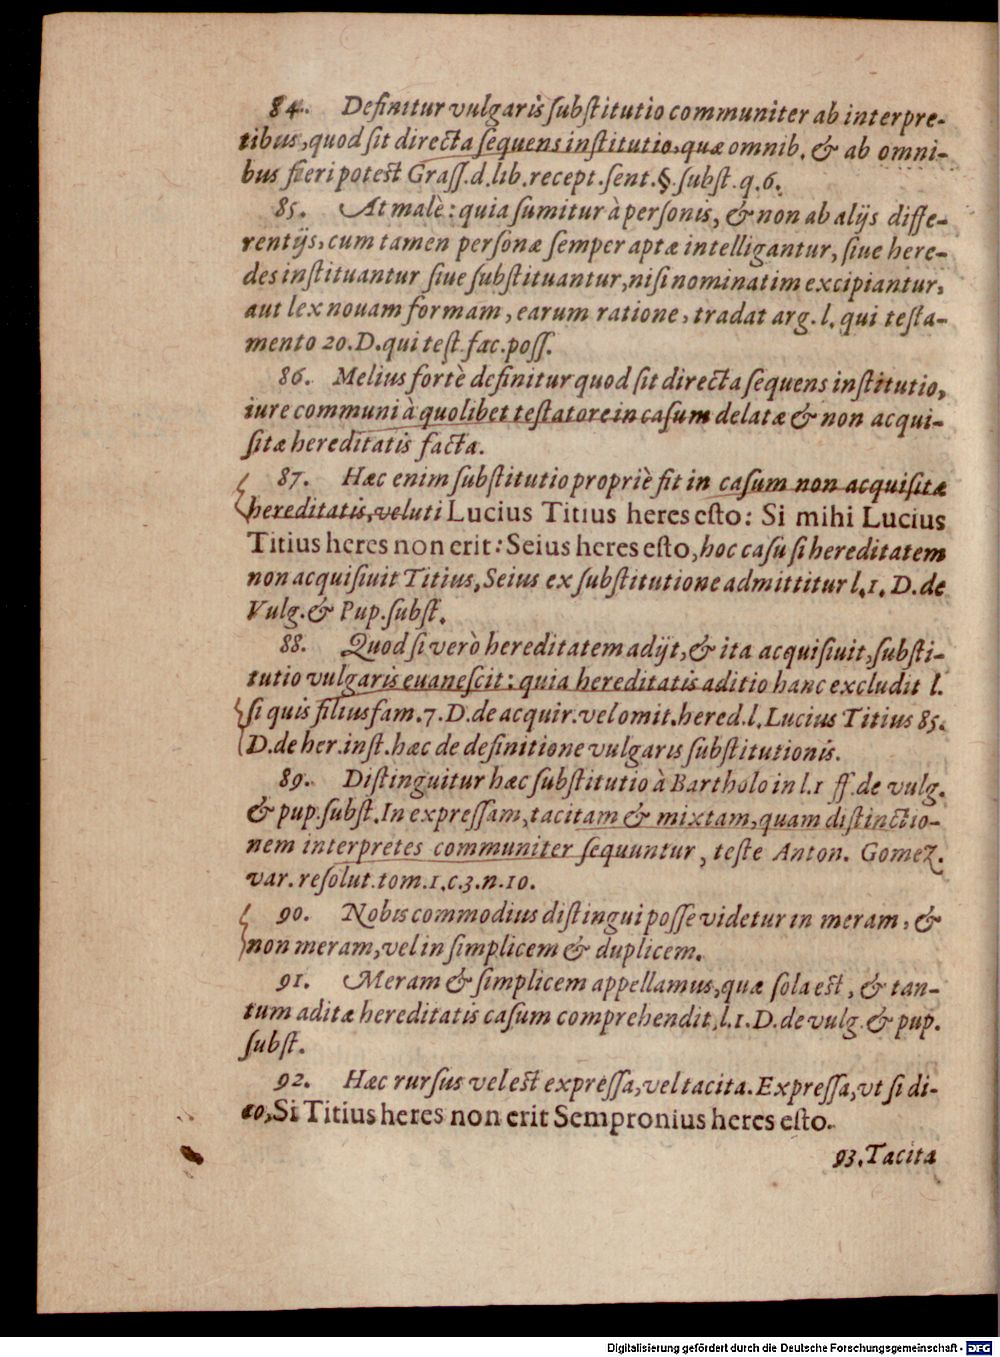 84. Definitur vulgaris ſubſtitutio communiter ab interpre-
tibus, quod ſit directa ſequens inſtitutio, quæ omnib. & ab omni-
bus fieri poteſt Graſſ. d. lib. recept. ſent. §. ſubſt. q. 6.
85. At malè: quia ſumitur à perſonis, & non ab alijs diffe-
rentijs, cum tamen perſonæ ſemper aptæ intelligantur, ſiue here-
des inſtituantur ſiue ſubſtituantur, niſi nominatim excipiantur,
aut lex nouam formam, earum ratione, tradat arg. l. qui teſta-
mento 20. D. qui teſt. fac. poſſ.
86. Melius fortè definitur quod ſit directa ſequens inſtitutio,
iure communi à quolibet teſtatore in caſum delatæ & non acqui-
ſitæ hereditatis facta.
87. Hæc enim ſubſtitutio propriè fit in caſum non acquiſitæ
hereditatis, veluti Lucius Titius heres eſto: Si mihi Lucius
Titius heres non erit: Seius heres eſto, hoc caſu ſi hereditatem
non acquiſiuit Titius, Seius ex ſubſtitutione admittitur l. 1. D. de
Vulg. & Pup. ſubſt.
88. Quod ſi verò hereditatem adijt, & ita acquiſiuit, ſubſti-
tutio vulgaris euaneſcit: quia hereditatis aditio hanc excludit l.
ſi quis filiusfam. 7. D. de acquir. vel omit. hered. l. Lucius Titius 85.
D. de her. inſt. hæc de definitione vulgaris ſubſtitutionis.
89. Diſtinguitur hæc ſubſtitutio à Bartholo in l. 1 ff. de vulg.
& pup. ſubſt. In expreſſam, tacitam & mixtam, quam diſtinctio-
nem interpretes communiter ſequuntur, teſte Anton. Gomez.
var. reſolut. tom. 1. c. 3. n. 10.
90. Nobis commodius diſtingui poſſe videtur in meram, &
non meram, vel in ſimplicem & duplicem.
91. Meram & ſimplicem appellamus, quæ ſola eſt, & tan-
tum aditæ hereditatis caſum comprehendit, l. 1. D. de vulg. & pup.
ſubſt.
92. Hæc rurſus vel eſt expreſſa, vel tacita. Expreſſa, vt ſi di-
co, Si Titius heres non erit Sempronius heres eſto.
93. Tacita
Digitalisierung gefördert durch die Deutsche Forschungsgemeinschaft - DFG